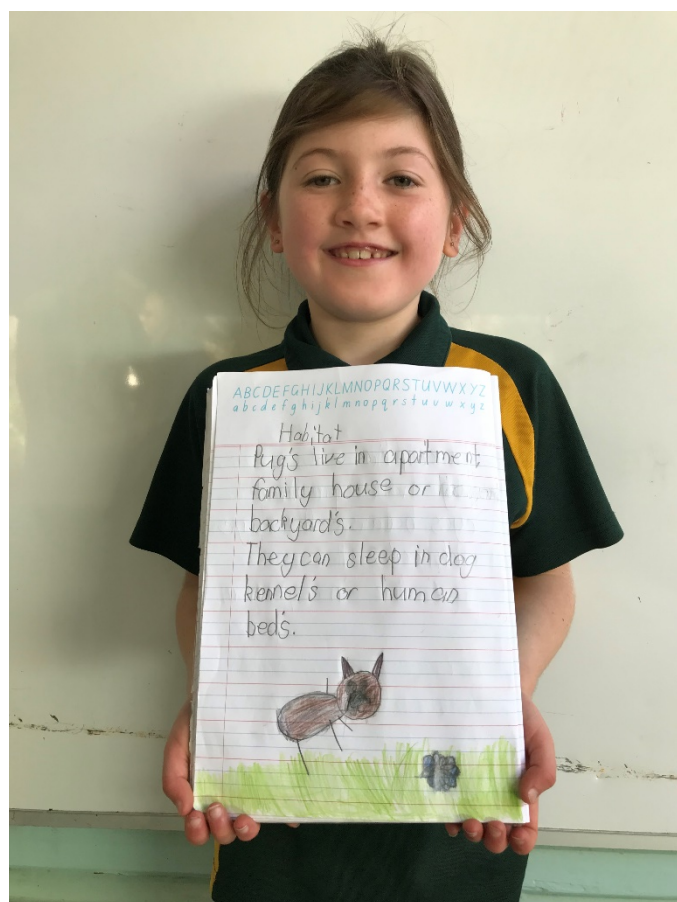 ABCDEFGHIJKLMNOPQRSTUVWXYZ
abcdefghijklmnopqrstuvwxyz
Habitat
Pug's live in apartment,
family house or
backyard's.
They can sleep in dog
kennel's or human
bed's.